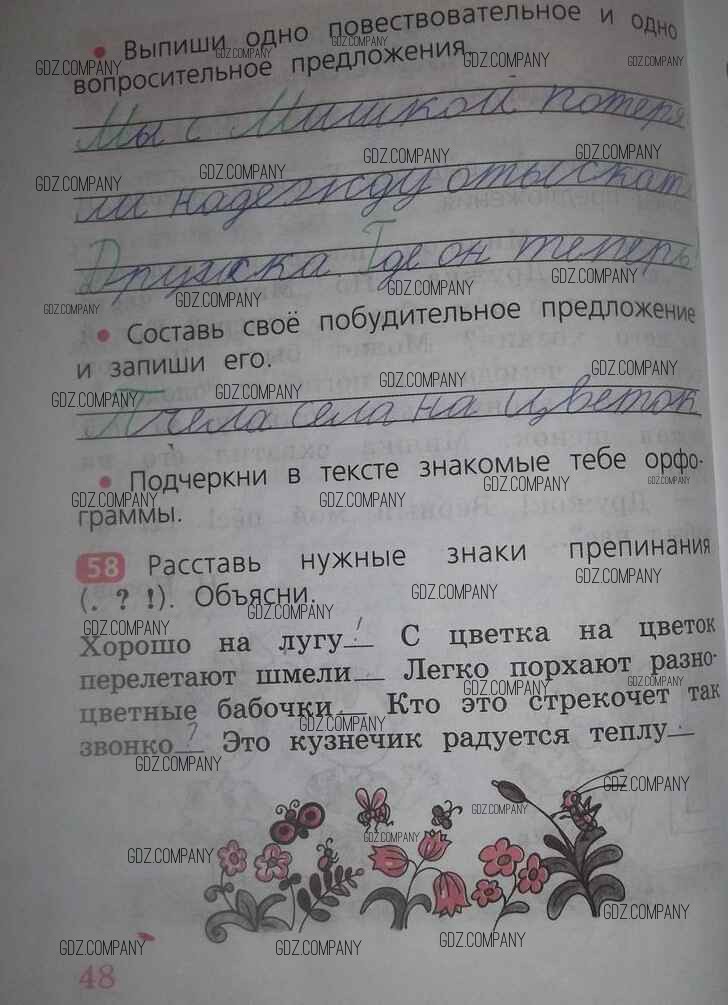 • Выпиши одно повествовательное и одно
вопросительное предложения.
Мы с Мишкой потеря
ли надежду отыскать
Дружка. Где он теперь
• Составь своё побудительное предложение
и запиши его.
Пчела села на цветок
• Подчеркни в тексте знакомые тебе орфо-
граммы.
58 Расставь нужные знаки препинания
(. ? !). Объясни.
Хорошо на лугу! С цветка на цветок
перелетают шмели__ Легко порхают разно-
цветные бабочки__ Кто это стрекочет так
звонко? Это кузнечик радуется теплу.
48
GDZ.COMPANY